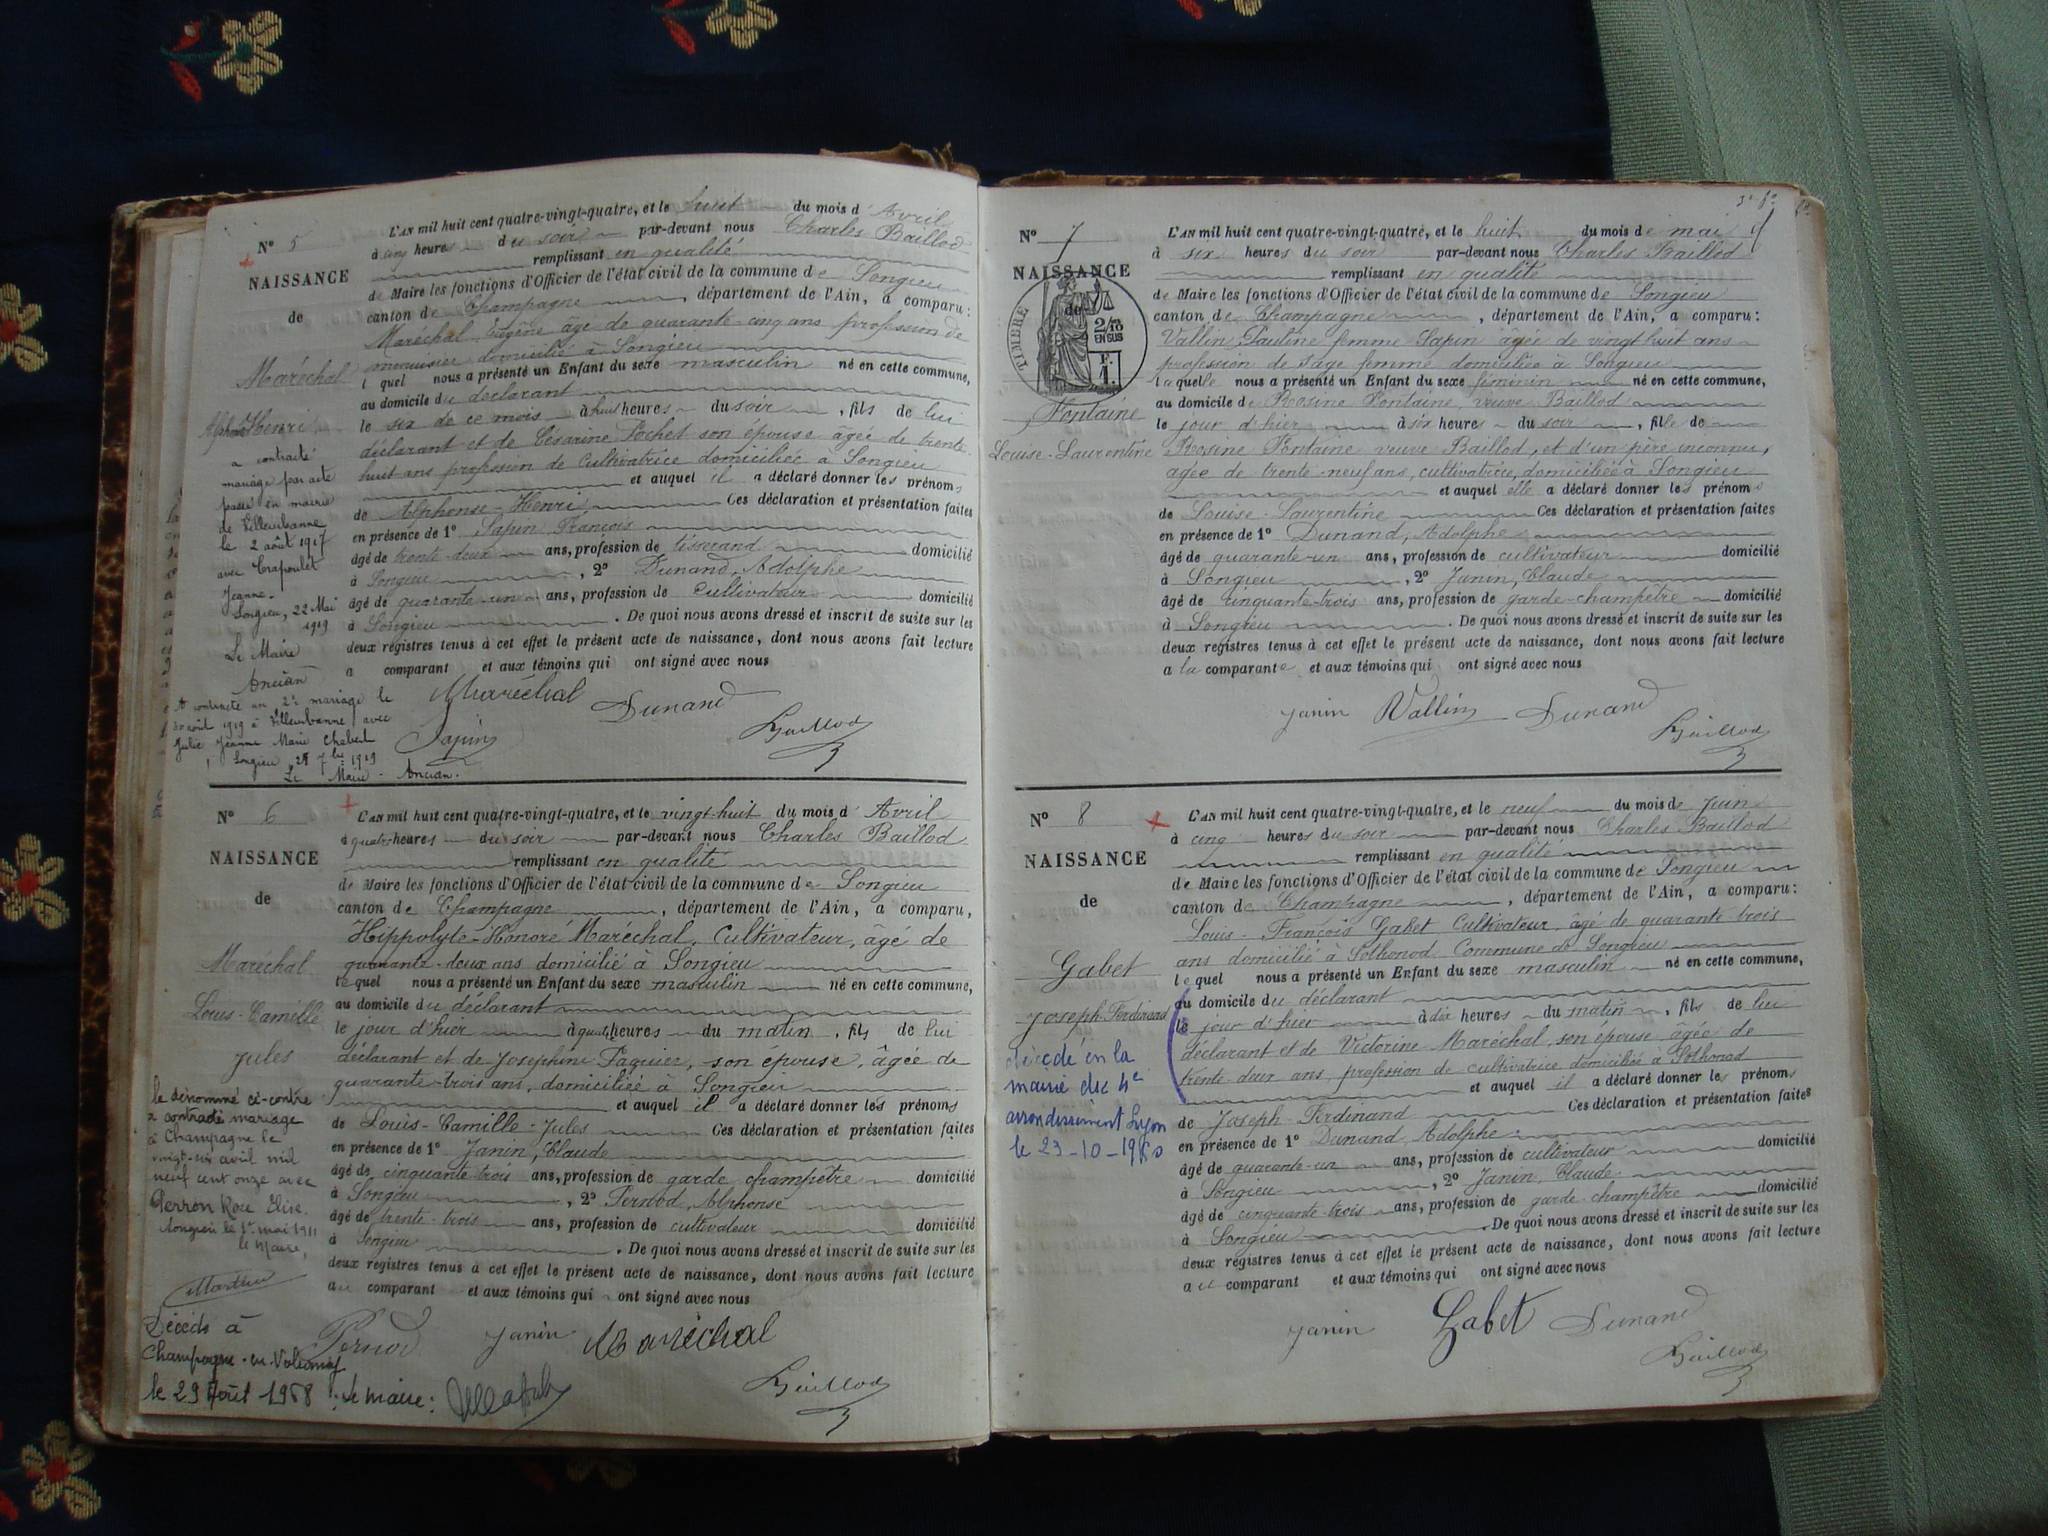 N° 5
NAISSANCE
de
Maréchal
Alphonse Henri
a contracté
mariage par acte
passé en mairie
de Villeurbanne
le 2 août 1917
avec Crapoulet
Jeanne.
Songieu, 22 Mai
1919
Le Maire
Ancian
A contracté un 2e mariage le
août 1919 à Villeurbanne avec
Julie Jeanne Marie Chabert
Songieu, 7bre 1919
Le Maire - Ancian.
L'AN mil huit cent quatre-vingt-quatre, et le huit du mois d'Avril
à cinq heures du soir par-devant nous Charles Baillod
remplissant en qualité
de Maire les fonctions d'Officier de l'état civil de la commune de Songieu
canton de Champagne, département de l'Ain, a comparu:
Maréchal Eugène âgé de quarante-cinq ans profession de
menuisier domicilié à Songieu
lequel nous a présenté un Enfant du sexe masculin né en cette commune,
au domicile du déclarant
le six de ce mois à huit heures du soir, fils de lui
déclarant et de Césarine Pochet son épouse âgée de trente-
huit ans profession de cultivatrice domiciliée à Songieu
et auquel il a déclaré donner les prénoms
de Alphonse-Henri Ces déclaration et présentation faites
en présence de 1° Sapin François
âgé de trente-deux ans, profession de tisserand domicilié
à Songieu, 2° Dunand, Adolphe
âgé de quarante-un ans, profession de cultivateur domicilié
à Songieu. De quoi nous avons dressé et inscrit de suite sur les
deux registres tenus à cet effet le présent acte de naissance, dont nous avons fait lecture
a comparant et aux témoins qui ont signé avec nous
Maréchal Dunand
Sapin Baillod
N° 6
NAISSANCE
de
Maréchal
Louis-Camille
Jules
le dénommé ci-contre
a contracté mariage
à Champagne le
vingt-six avril mil
neuf cent onze avec
Perron Rose Elise.
Songieu le 1er mai 1911
le Maire,
Martin
Décédé à
Champagne-en-Valromey
le 29 Août 1968 : le maire :
L'AN mil huit cent quatre-vingt-quatre, et le vingt-huit du mois d'Avril
à quatre heures du soir par-devant nous Charles Baillod
remplissant en qualité
de Maire les fonctions d'Officier de l'état civil de la commune de Songieu
canton de Champagne, département de l'Ain, a comparu,
Hippolyte-Honoré Maréchal, Cultivateur, âgé de
quarante-deux ans domicilié à Songieu
lequel nous a présenté un Enfant du sexe masculin né en cette commune,
au domicile du déclarant
le jour d'hier à quatre heures du matin, fils de lui
déclarant et de Joséphine Paquier, son épouse, âgée de
quarante-trois ans, domiciliée à Songieu
et auquel il a déclaré donner les prénoms
de Louis-Camille-Jules Ces déclaration et présentation faites
en présence de 1° Janin, Claude
âgé de cinquante-trois ans, profession de garde champêtre domicilié
à Songieu, 2° Pernod, Alphonse
âgé de trente-trois ans, profession de cultivateur domicilié
à Songieu. De quoi nous avons dressé et inscrit de suite sur les
deux registres tenus à cet effet le présent acte de naissance, dont nous avons fait lecture
au comparant et aux témoins qui ont signé avec nous
Pernod Janin Maréchal
Baillod
N° 7
NAISSANCE
de
TIMBRE
2/10
EN SUS
F.
1.
Fontaine
Louise-Laurentine
L'AN mil huit cent quatre-vingt-quatre, et le huit du mois de mai
à six heures du soir par-devant nous Charles Baillod
remplissant en qualité
de Maire les fonctions d'Officier de l'état civil de la commune de Songieu
canton de Champagne, département de l'Ain, a comparu:
Vallin Pauline femme Sapin âgée de vingt huit ans
profession de sage femme domiciliée à Songieu
laquelle nous a présenté un Enfant du sexe féminin né en cette commune,
au domicile de Rosine Fontaine, veuve Baillod
le jour d'hier à six heures du soir, fille de
Rosine Fontaine veuve Baillod, et d'un père inconnu,
âgée de trente-neuf ans, cultivatrice, domiciliée à Songieu
et auquel elle a déclaré donner les prénoms
de Louise-Laurentine Ces déclaration et présentation faites
en présence de 1° Dunand, Adolphe
âgé de quarante-un ans, profession de cultivateur domicilié
à Songieu, 2° Janin, Claude
âgé de cinquante-trois ans, profession de garde-champêtre domicilié
à Songieu. De quoi nous avons dressé et inscrit de suite sur les
deux registres tenus à cet effet le présent acte de naissance, dont nous avons fait lecture
a la comparante et aux témoins qui ont signé avec nous
Janin Vallin Dunand
Baillod
N° 8
NAISSANCE
de
Gabet
Joseph-Ferdinand
décédé en la
mairie du 4e
arrondissement Lyon
le 23-10-1960
L'AN mil huit cent quatre-vingt-quatre, et le neuf du mois de Juin
à cinq heures du soir par-devant nous Charles Baillod
remplissant en qualité
de Maire les fonctions d'Officier de l'état civil de la commune de Songieu
canton de Champagne, département de l'Ain, a comparu:
Louis-François Gabet Cultivateur, âgé de quarante-trois
ans domicilié à Sothonod Commune de Songieu
lequel nous a présenté un Enfant du sexe masculin né en cette commune,
au domicile du déclarant
le jour d'hier à dix heures du matin, fils de lui
déclarant et de Victorine Maréchal, son épouse, âgée de
trente-deux ans, profession de cultivatrice domiciliée à Sothonod
et auquel il a déclaré donner les prénoms
de Joseph-Ferdinand Ces déclaration et présentation faites
en présence de 1° Dunand, Adolphe
âgé de quarante-un ans, profession de cultivateur domicilié
à Songieu, 2° Janin, Claude
âgé de cinquante-trois ans, profession de garde-champêtre domicilié
à Songieu. De quoi nous avons dressé et inscrit de suite sur les
deux registres tenus à cet effet le présent acte de naissance, dont nous avons fait lecture
au comparant et aux témoins qui ont signé avec nous
Janin Gabet Dunand
Baillod